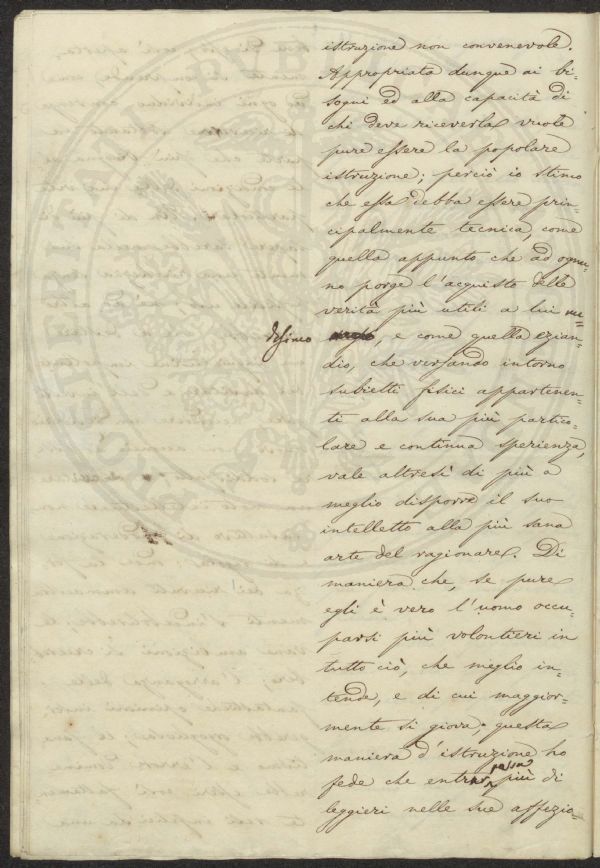 istruzione non convenevole.
Appropriata dunque ai bi-
sogni ed alla capacità di
chi deve riceverla vuole
pure essere la popolare
istruzione; perciò io stimo
che essa debba essere prin-
cipalmente tecnica, come
quella appunto che ad ognu-
no porge l'acquisto delle
verità più utili a lui me-
desimo, e come quella ezian-
dio, che versando intorno
subietti fisici appartenen-
ti alla sua più partico-
lare e continua sperienza,
vale altresì di più a
meglio disporre il suo
intelletto alla più sana
arte del ragionare. Di
maniera che, se pure
egli è vero l'uomo occu-
parsi più volontieri in
tutto ciò, che meglio in-
tende, e di cui maggior-
mente si giova; questa
maniera d'istruzione ho
fede che entrar possa più di
leggieri nelle sue affezio-